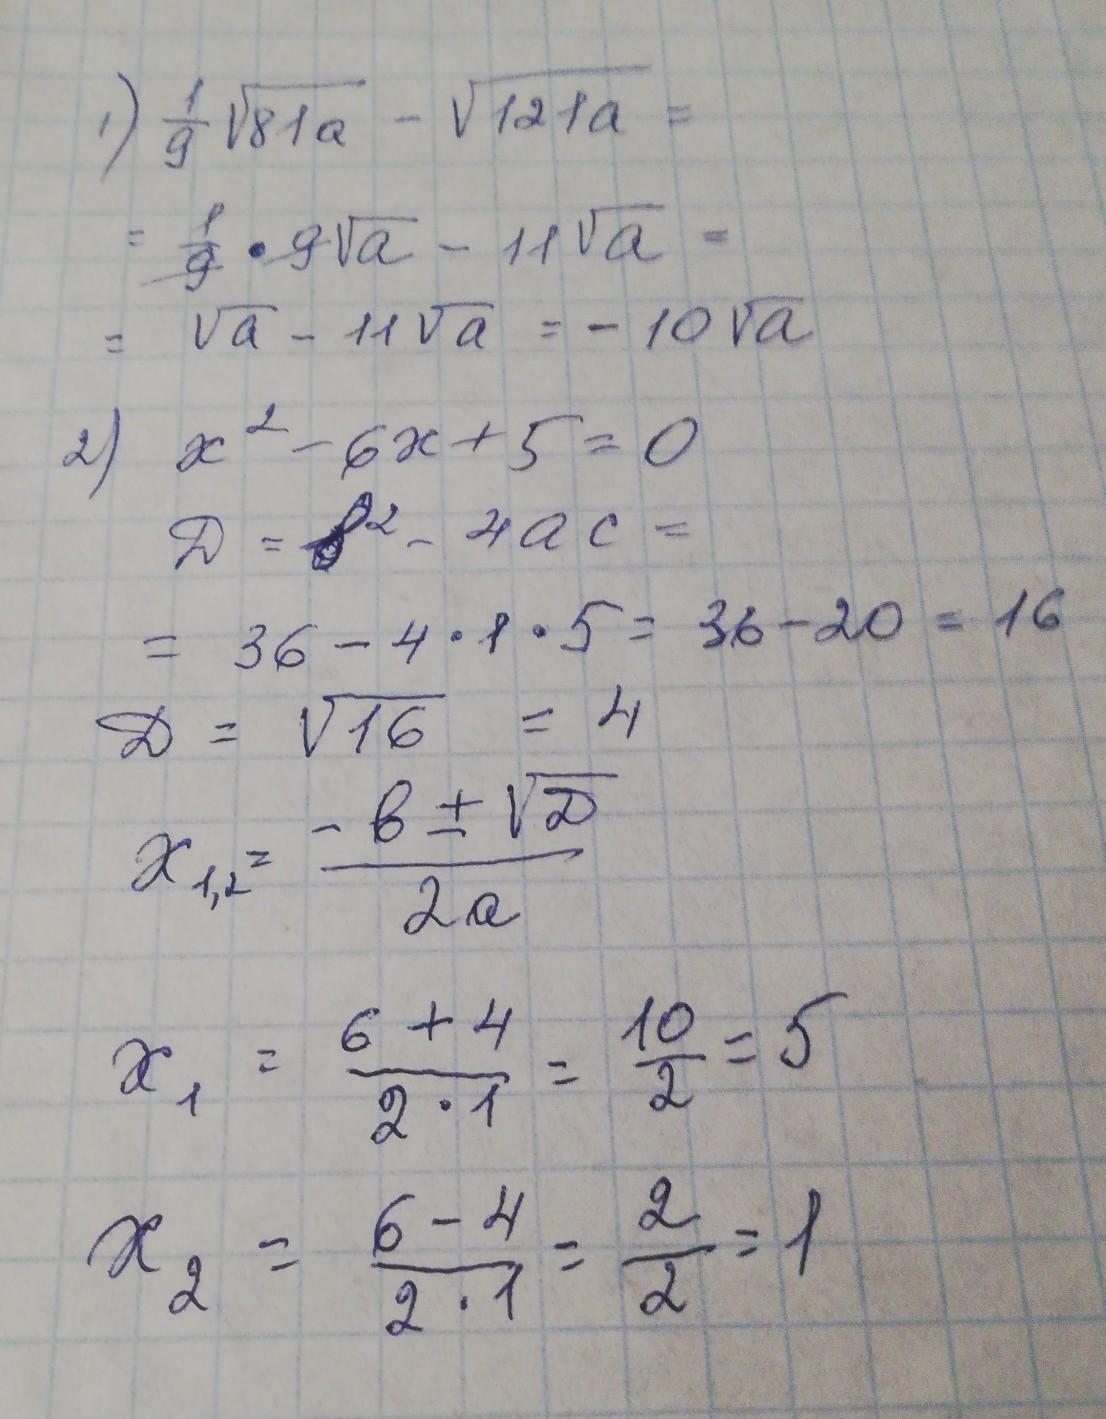 1) 1/9 √81a - √121a =
= 1/9 • 9√a - 11√a =
= √a - 11√a = - 10√a
2) x² - 6x + 5 = 0
D = b² - 4ac =
= 36 - 4 • 1 • 5 = 36 - 20 = 16
D = √16 = 4
x₁,₂ = (-b ± √D)/2a
x₁ = (6 + 4)/(2 • 1) = 10/2 = 5
x₂ = (6 - 4)/(2 • 1) = 2/2 = 1